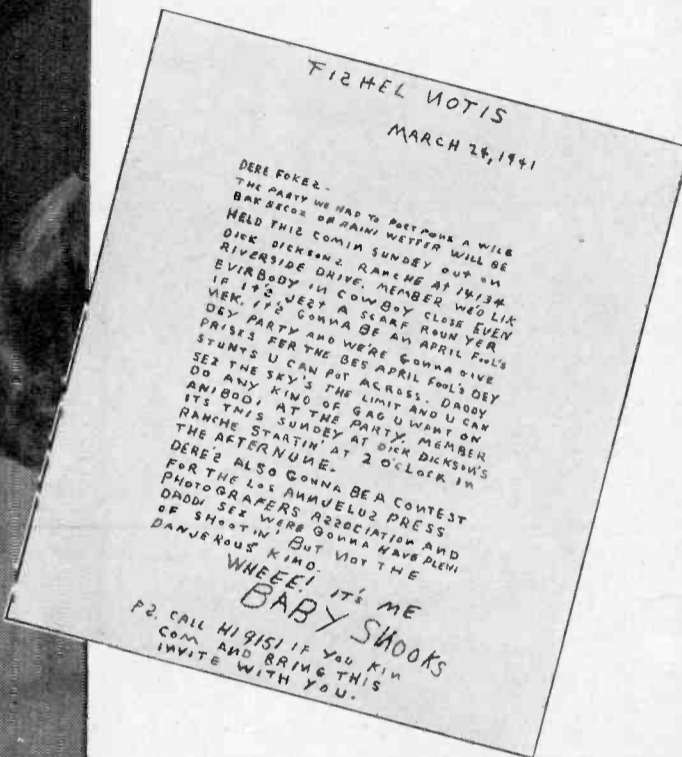 FIZHEL NOTIS
MARCH 24, 1941
DERE FOKEZ.
THE PARTY WE HAD TO POST PONE A WILE
BAK BECOZ OF RAINI WETTER WILL BE
HELD THIZ COMIN SUNDEY OUT ON
DICK DICKSONZ RANCHE AT 14134
RIVERSIDE DRIVE. MEMBER WE'D LIK
EVIRBODY IN COWBOY CLOSE EVEN
IF IT'Z JEZT A SCARF ROUN YER
NEK. IT'Z GONNA BE AN APRIL FOOL'S
DEY PARTY AND WE'RE GONNA GIVE
PRISES FER THE BES APRIL FOOL'S DEY
STUNTS U CAN POT ACROSS. DADDY
SEZ THE SKY'S THE LIMIT AND U CAN
DO ANY KIND OF GAG U WANT ON
ANIBODI AT THE PARTY. MEMBER
ITS THIS SUNDEY AT DICK DICKSON'S
RANCHE STARTIN' AT 2 O'CLOCK IN
THE AFTERNUNE.
DERE'Z ALSO GONNA BE A CONTEST
FOR THE LOS ANNJELUZ PRESS
PHOTOGRAFERS AZZOCIATION AND
DADDI SEZ WERE GONNA HAVE PLENI
OF SHOOTIN' BUT NOT THE
DANJEROUS KIND.
WHEEE! IT'S ME
BABY SNOOKS
PZ. CALL HI 9151 IF YOU KIN
COM AND BRING THIS
INVITE WITH YOU.